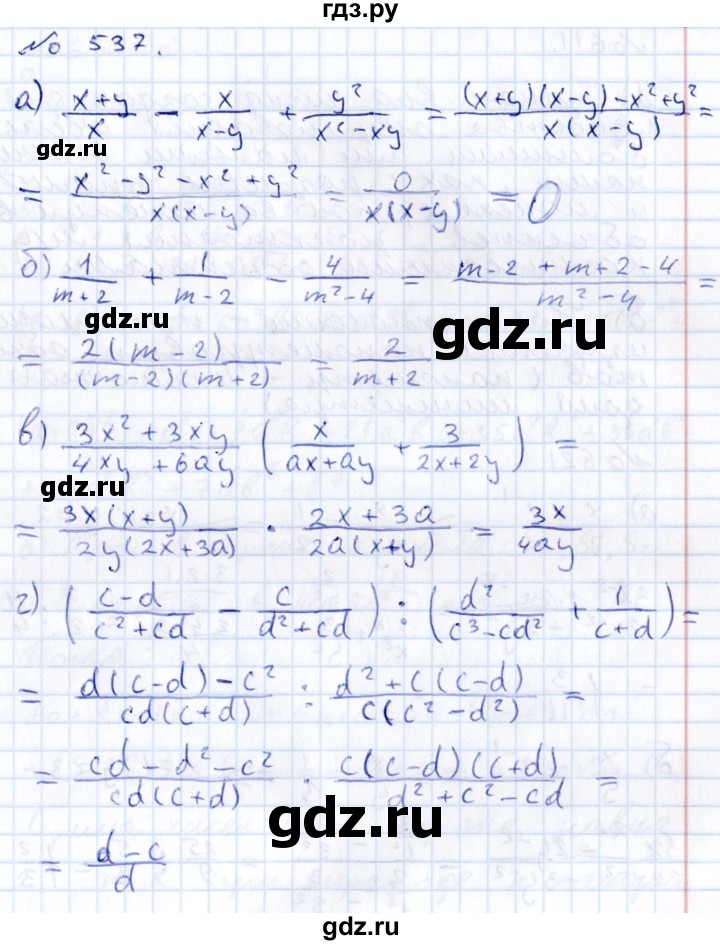 гдз.ру
№ 537.
а) (x+y)/x − x/(x−y) + y²/(x²−xy) = ((x+y)(x−y)−x²+y²)/(x(x−y)) =
= (x²−y²−x²+y²)/(x(x−y)) = 0/(x(x−y)) = 0
б) 1/(m+2) + 1/(m−2) − 4/(m²−4) = (m−2+m+2−4)/(m²−4) =
gdz.ru
gdz.ru
= 2(m−2)/((m−2)(m+2)) = 2/(m+2)
в) (3x²+3xy)/(4xy+6ay) (x/(ax+ay) + 3/(2x+2y)) =
gdz.ru
= 3x(x+y)/(2y(2x+3a)) · (2x+3a)/(2a(x+y)) = 3x/(4ay)
г) ((c−d)/(c²+cd) − c/(d²+cd)) : (d²/(c³−cd²) + 1/(c+d)) =
= (d(c−d)−c²)/(cd(c+d)) : (d²+c(c−d))/(c(c²−d²)) =
= (cd−d²−c²)/(cd(c+d)) · c(c−d)(c+d)/(d²+c²−cd) =
gdz.ru
= (d−c)/d
gdz.ru